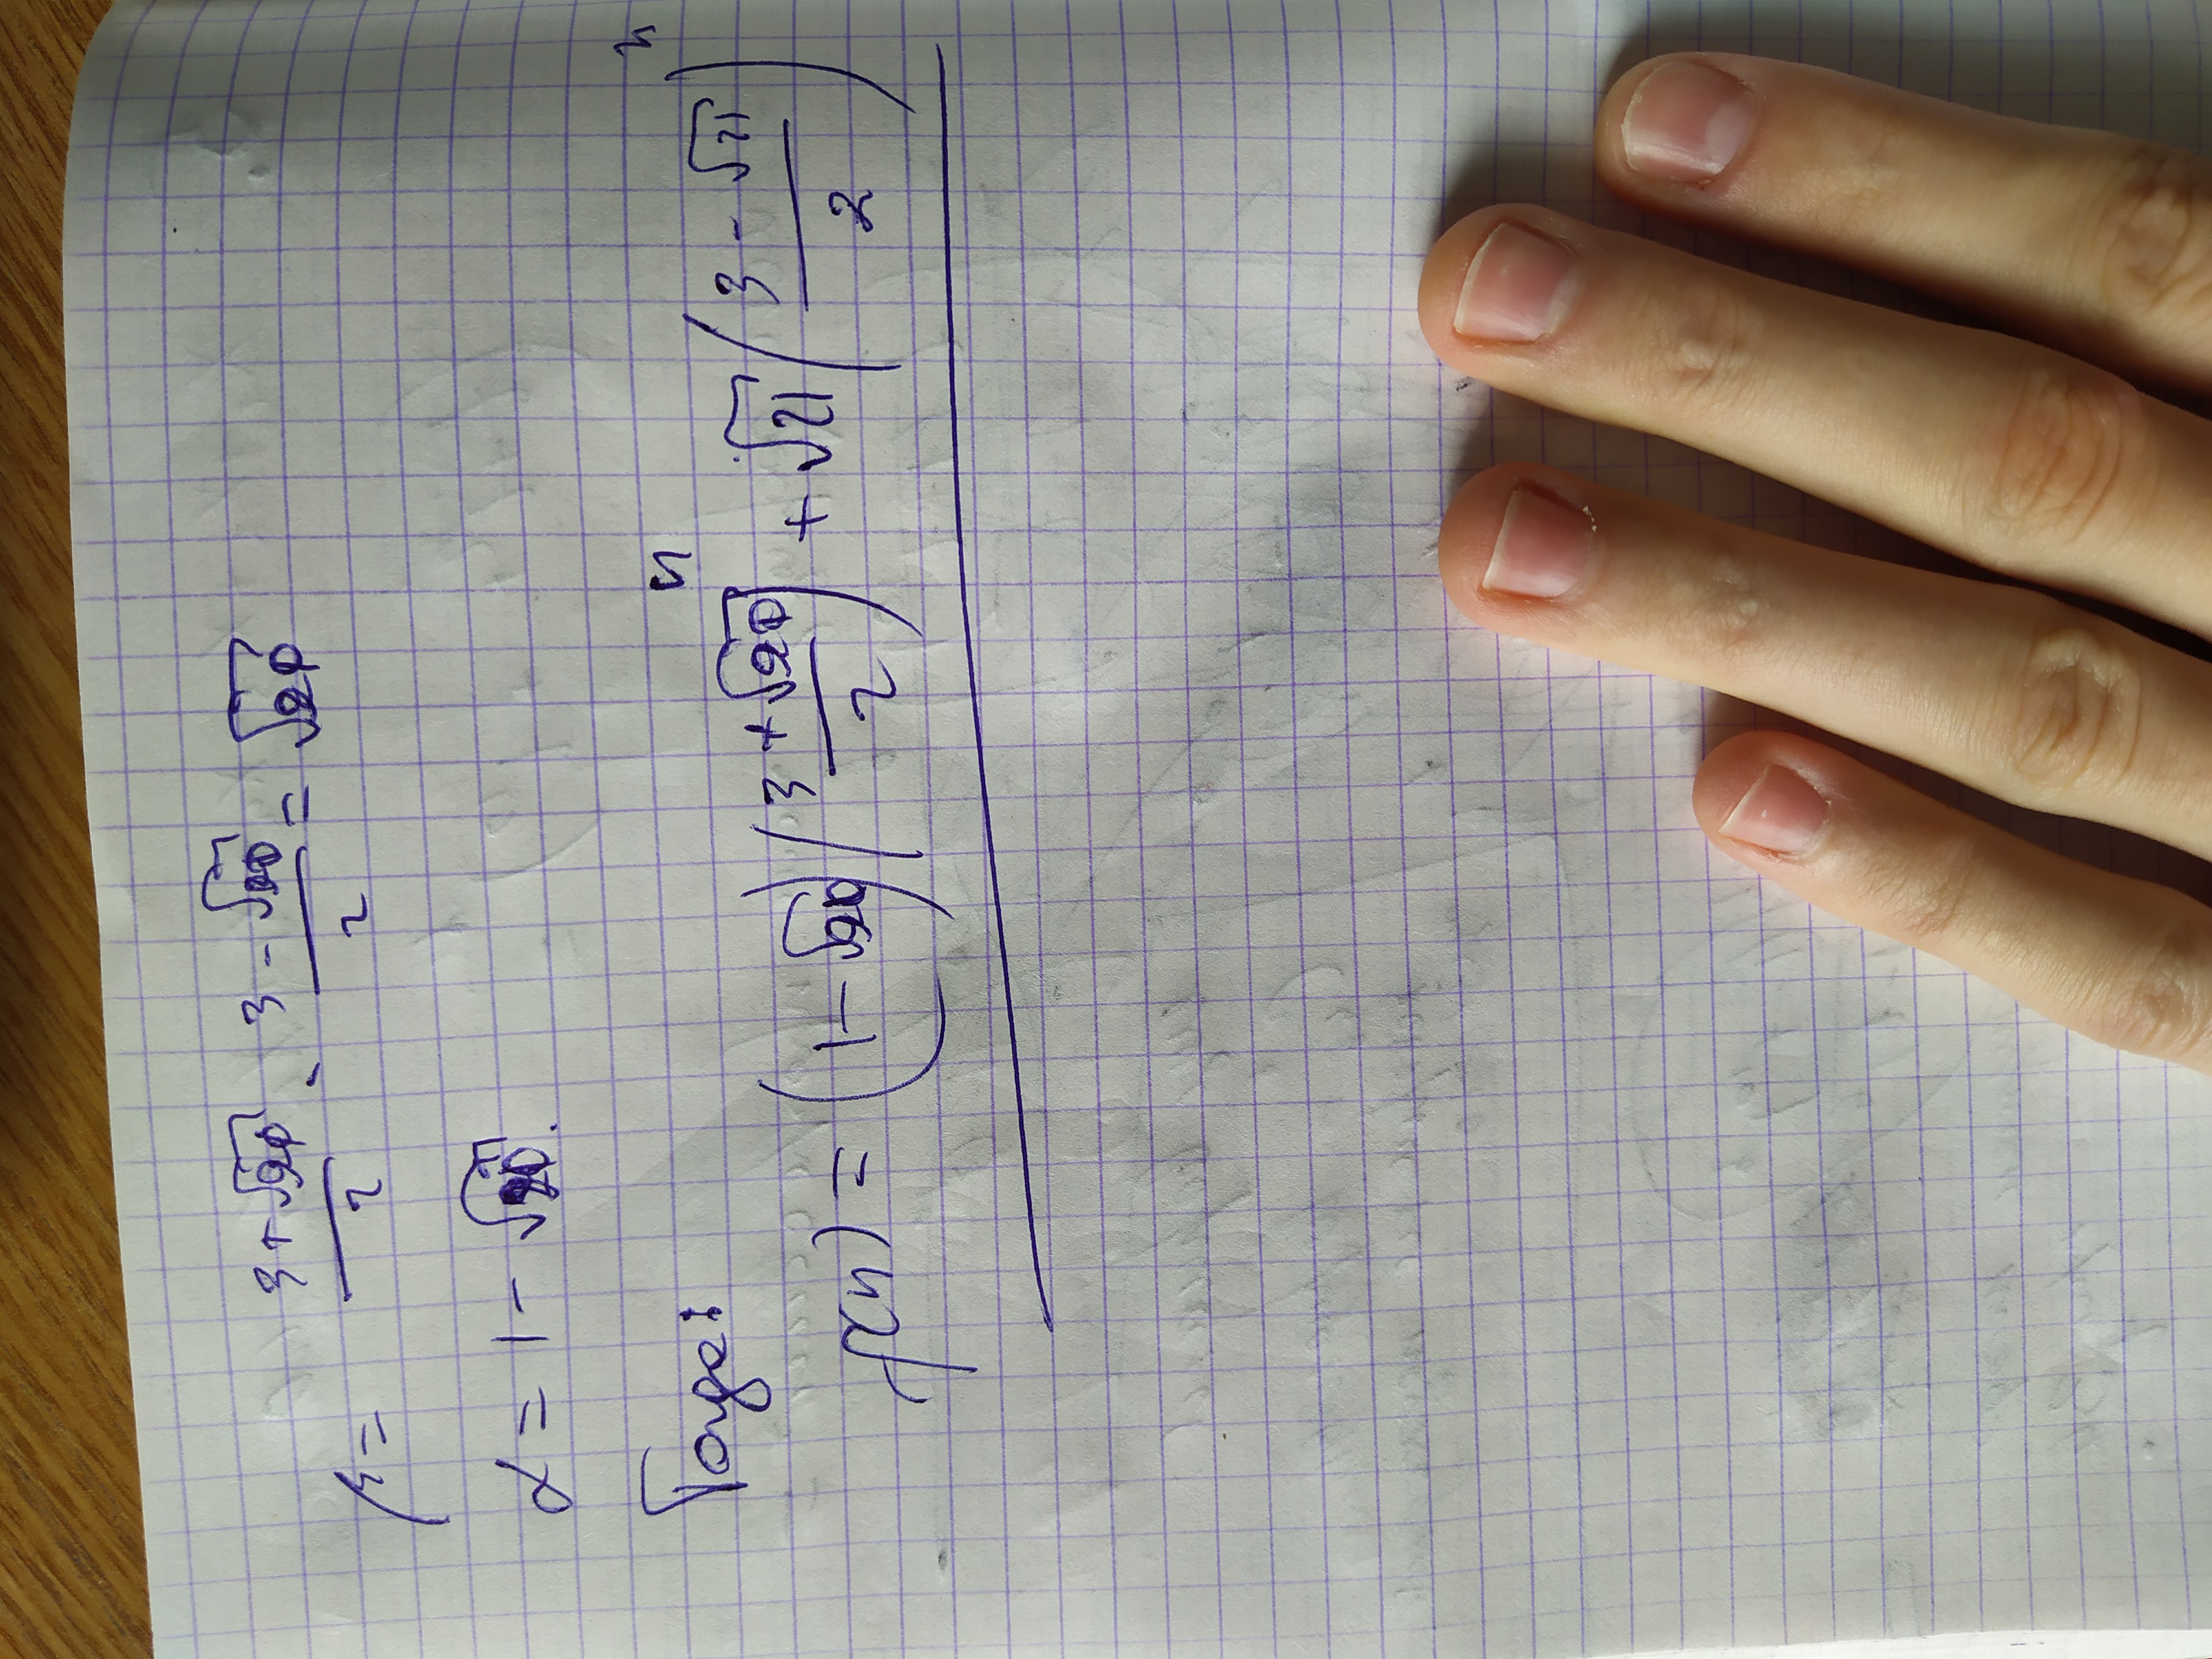 β = (3 + √21)/2 - (3 - √21)/2 = √21
α = 1 - √21.
Тогда:
f(n) = (1 - √21) ((3 + √21)/2)^n + √21 ((3 - √21)/2)^n